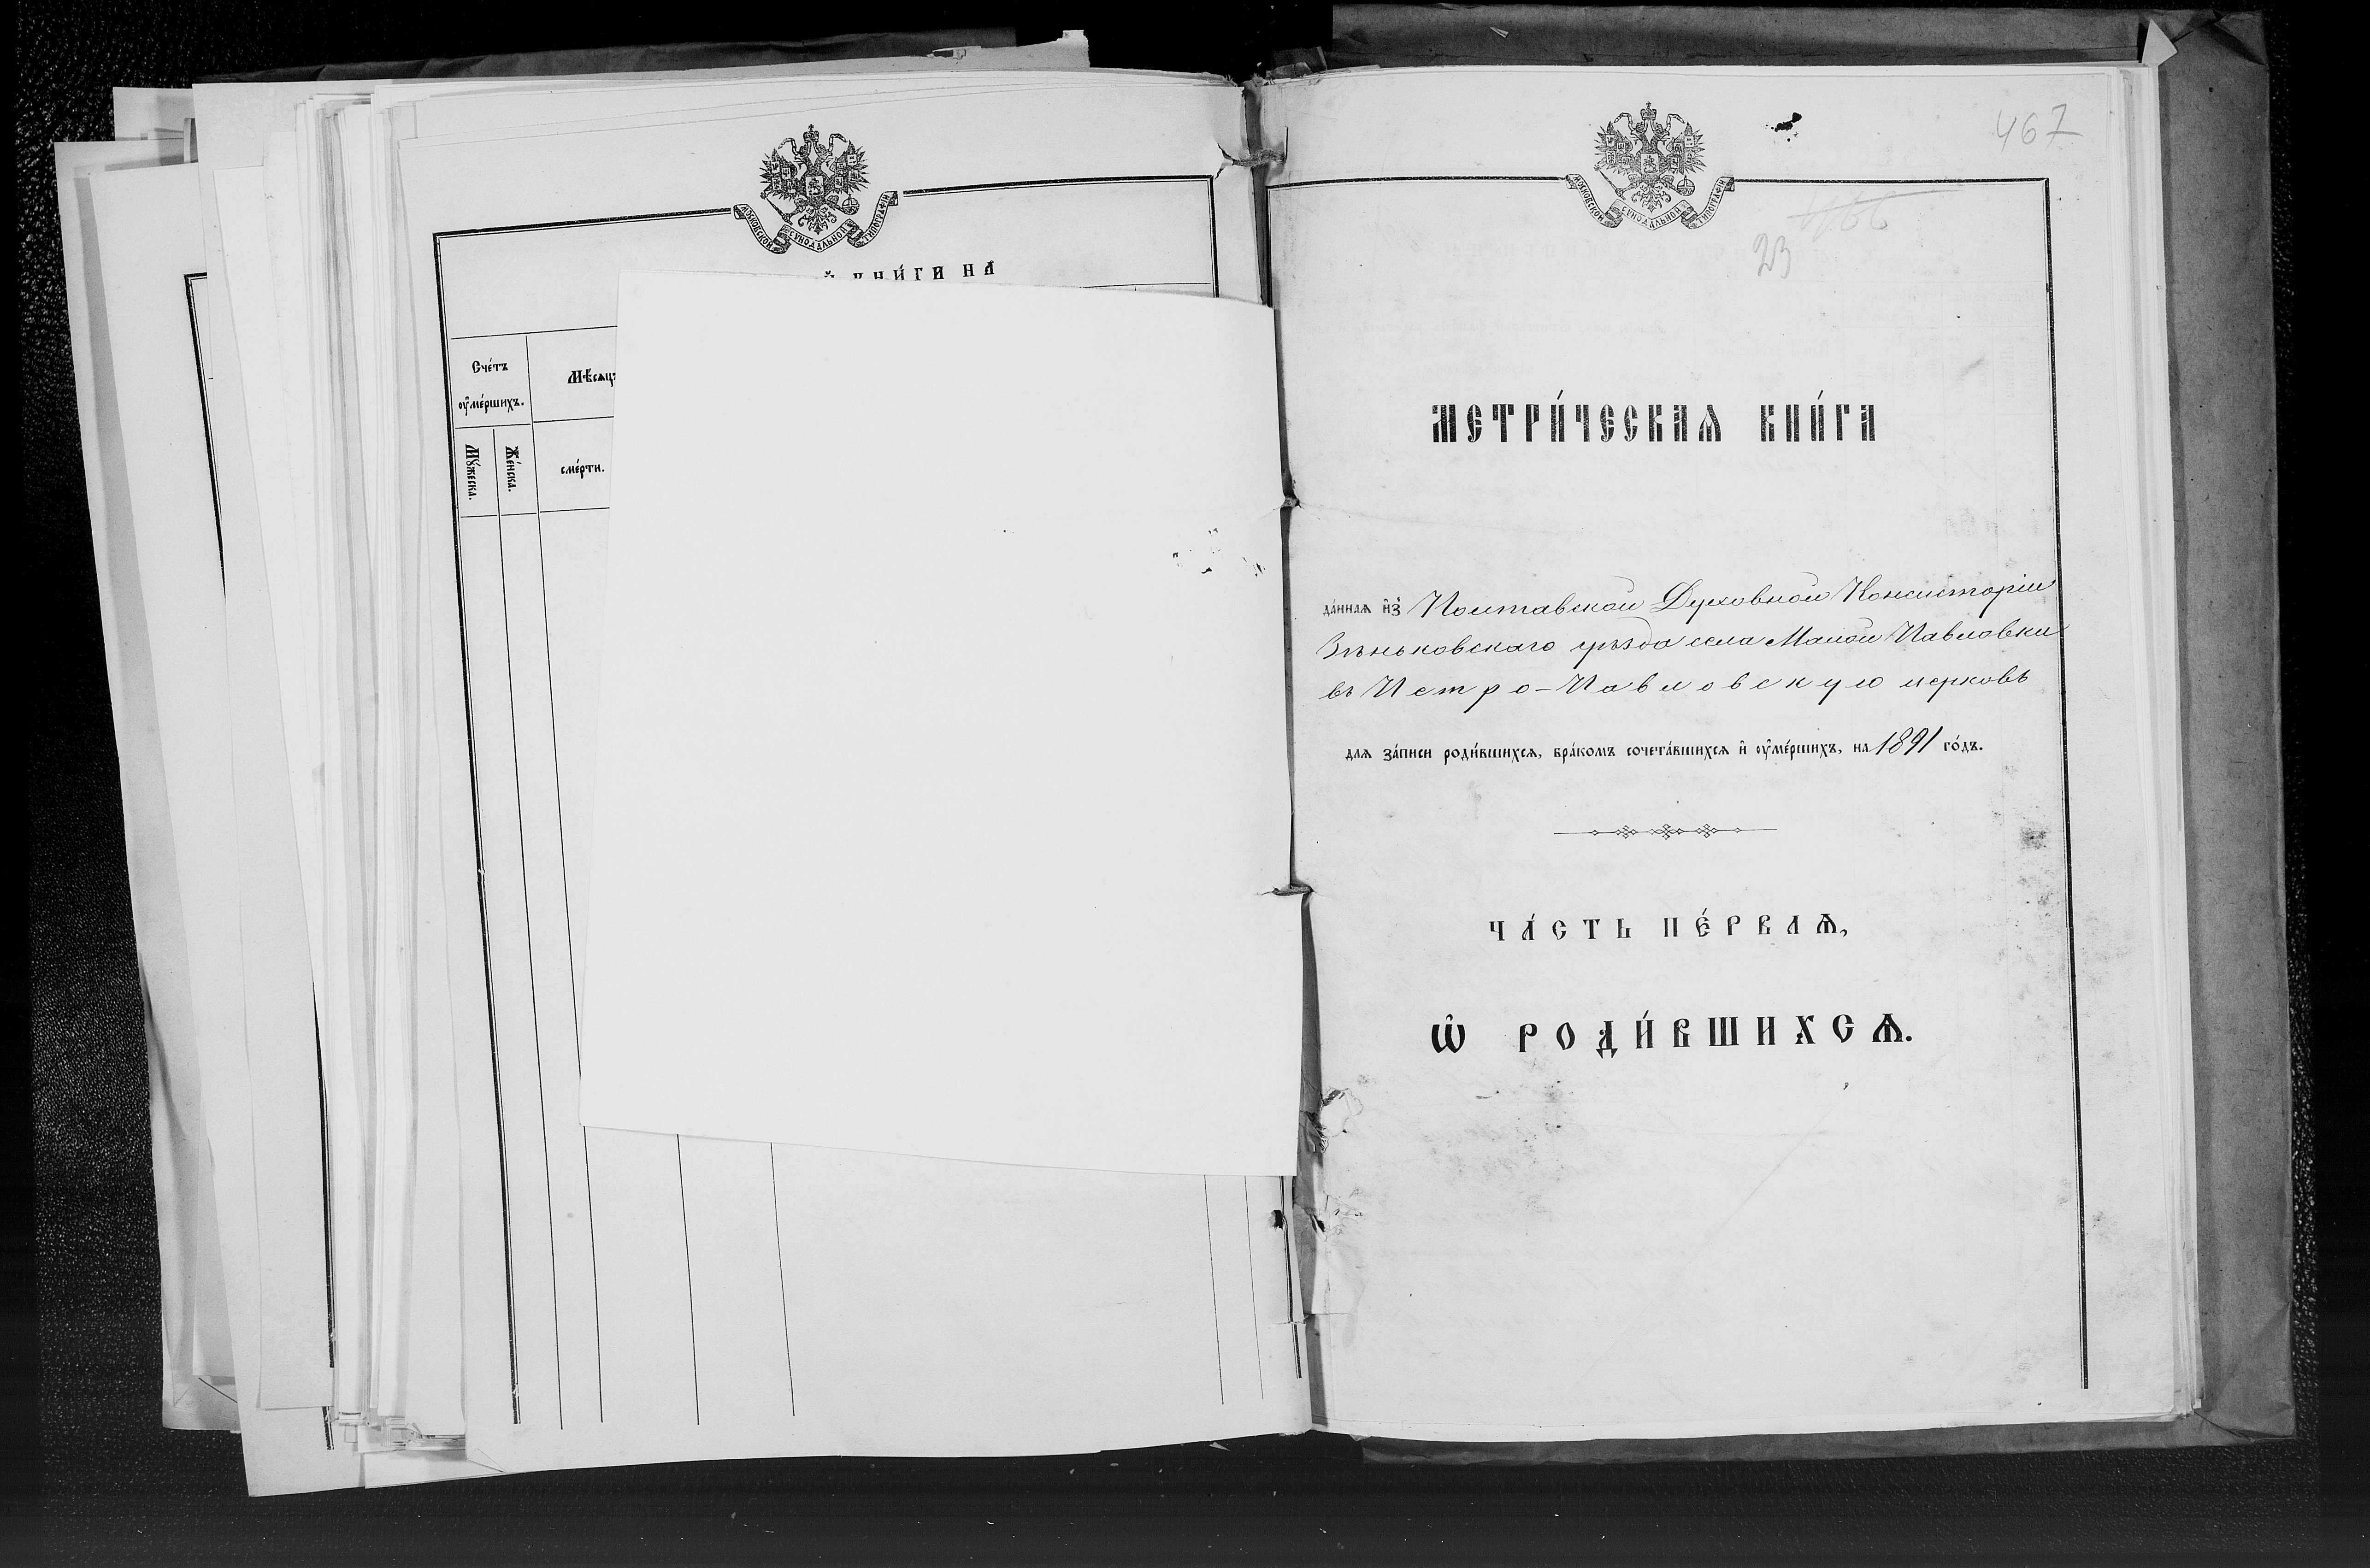 МОСКОВСКОЙ СѴНОДАЛЬНОЙ ТИПОГРАФІИ
КНИ́ГИ НА
Сче́тъ
ᲂу҆ме́ршихъ.
Мꙋ́жеска.
Же́нска.
Мѣ́сяцъ
сме́рти.
467
МОСКОВСКОЙ СѴНОДАЛЬНОЙ ТИПОГРАФІИ
466
23
МЕТРИ́ЧЕСКАѦ КНИ́ГА
да́нная и҆з̾ Полтавской Духовной Консисторіи
Зѣньковскаго уѣзда села Малой Павловки
въ Петро-Павловскую церковь
для за́писи роди́вшихся, бра́комъ сочета́вшихся и҆ ᲂу҆ме́ршихъ, на 1891 го́дъ.
ЧА́СТЬ ПЕ́РВАѦ,
Ѡ҆ РОДИ́ВШИХСѦ.